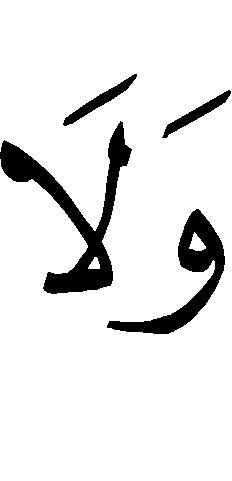 وَلَا